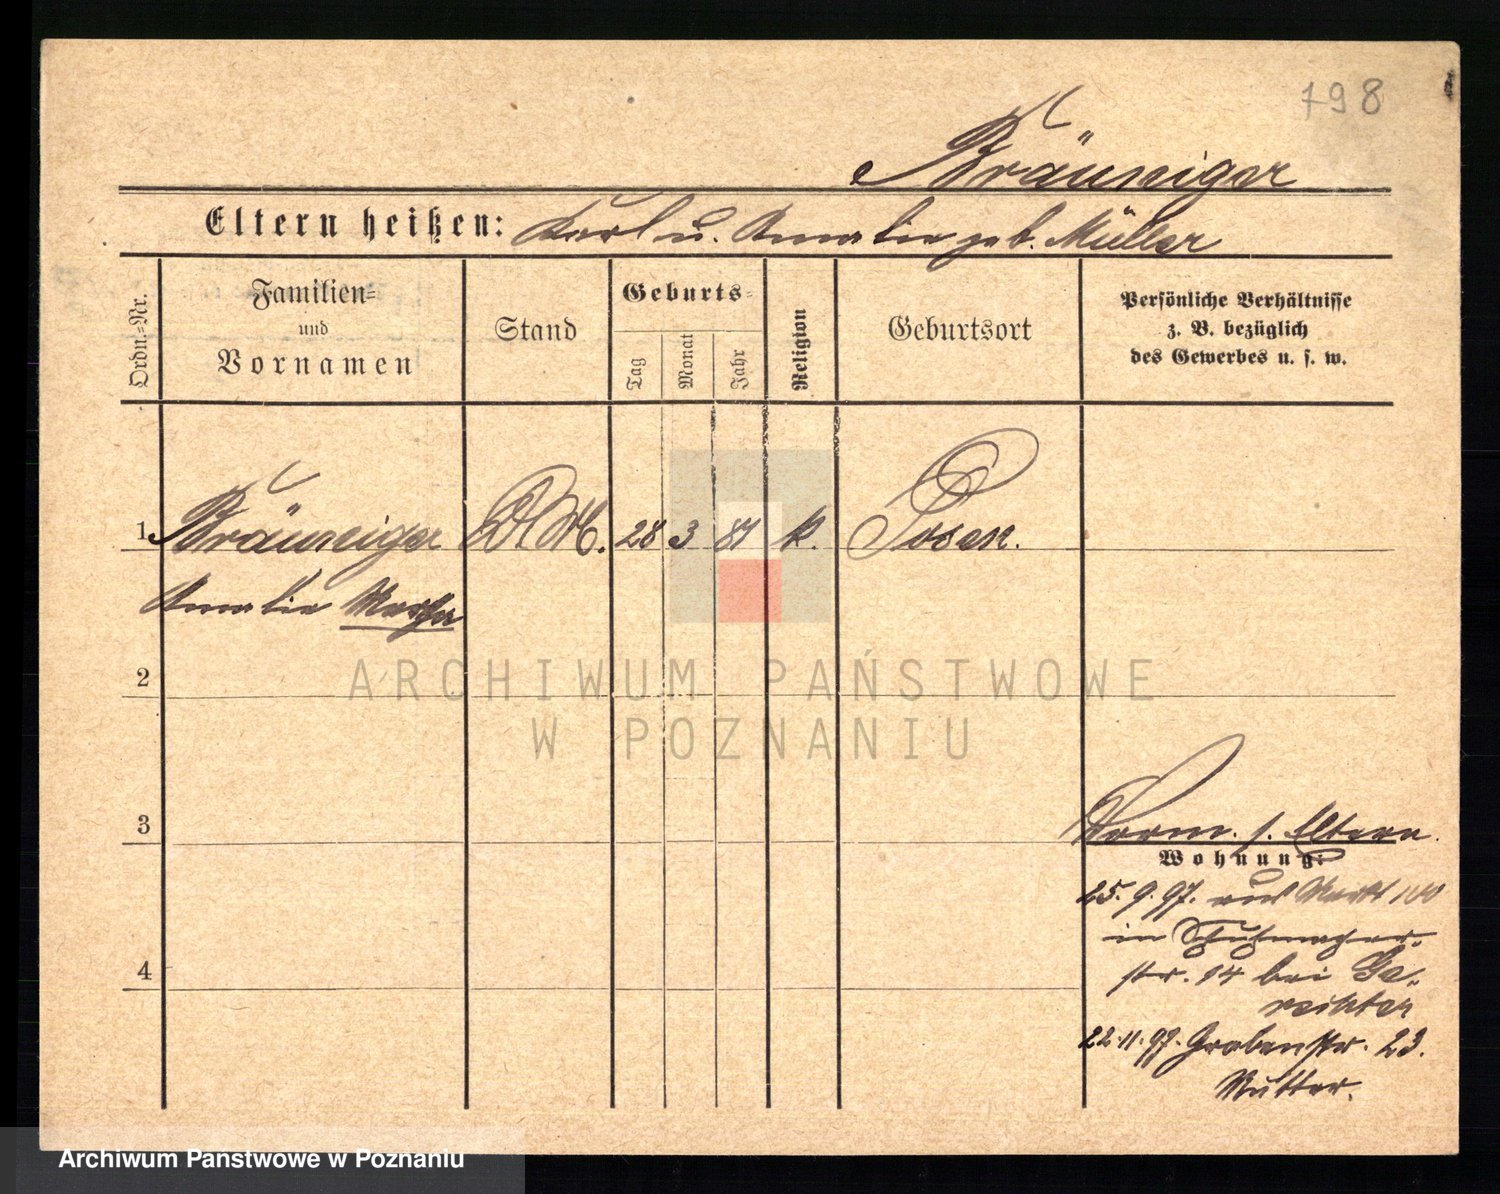 798
Bräuneiger
Eltern heißen: Karl u. Amalie geb. Müller
Ordn.-Nr.
Familien-
und
Vornamen
Stand
Geburts-
Tag
Monat
Jahr
Religion
Geburtsort
Persönliche Verhältnisse
z. B. bezüglich
des Gewerbes u. s. w.
1 Bräuneiger 28 3 87 k. Posen.
Amalie Martha
2
ARCHIWUM PAŃSTWOWE
W POZNANIU
3
Vorm. s. Eltern.
Wohnung:
25.9.97. aus Markt 100
in Schuhmacher-
str. 14 bei Ge-
4
22.11.97. Grabenstr. 23.
Mutter.
Archiwum Państwowe w Poznaniu